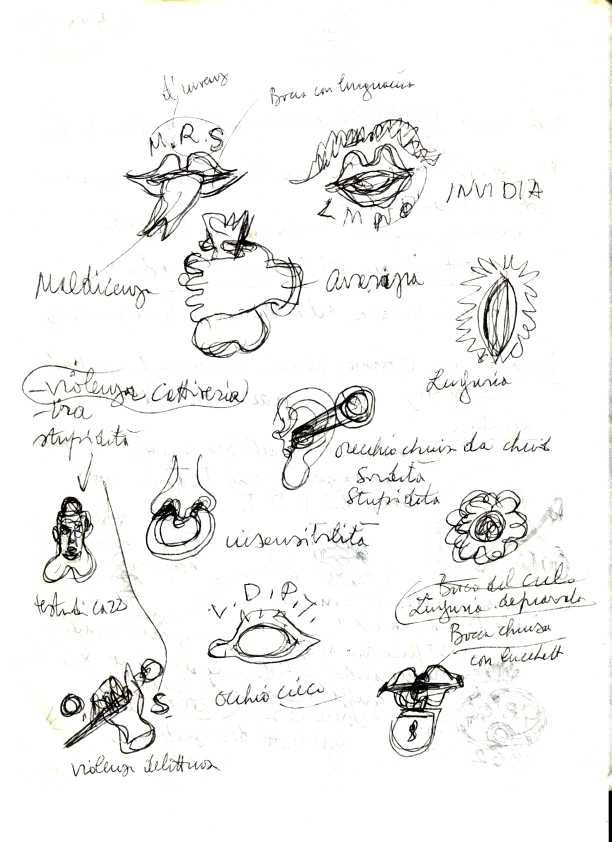 Bocca con linguaccia
M.R.S
L M N O
INVIDIA
Maldicenza
avarizia
Lussuria
- violenza, Cattiveria
- ira
stupidità
orecchio chiuso da chiodo
Sordità
Stupidità
insensibilità
testa di cazzo
V.D.P.
Occhio cieco
Buco del culo
Lussuria depravata
Bocca chiusa
con lucchetto
O.
S.
violenza delittuosa